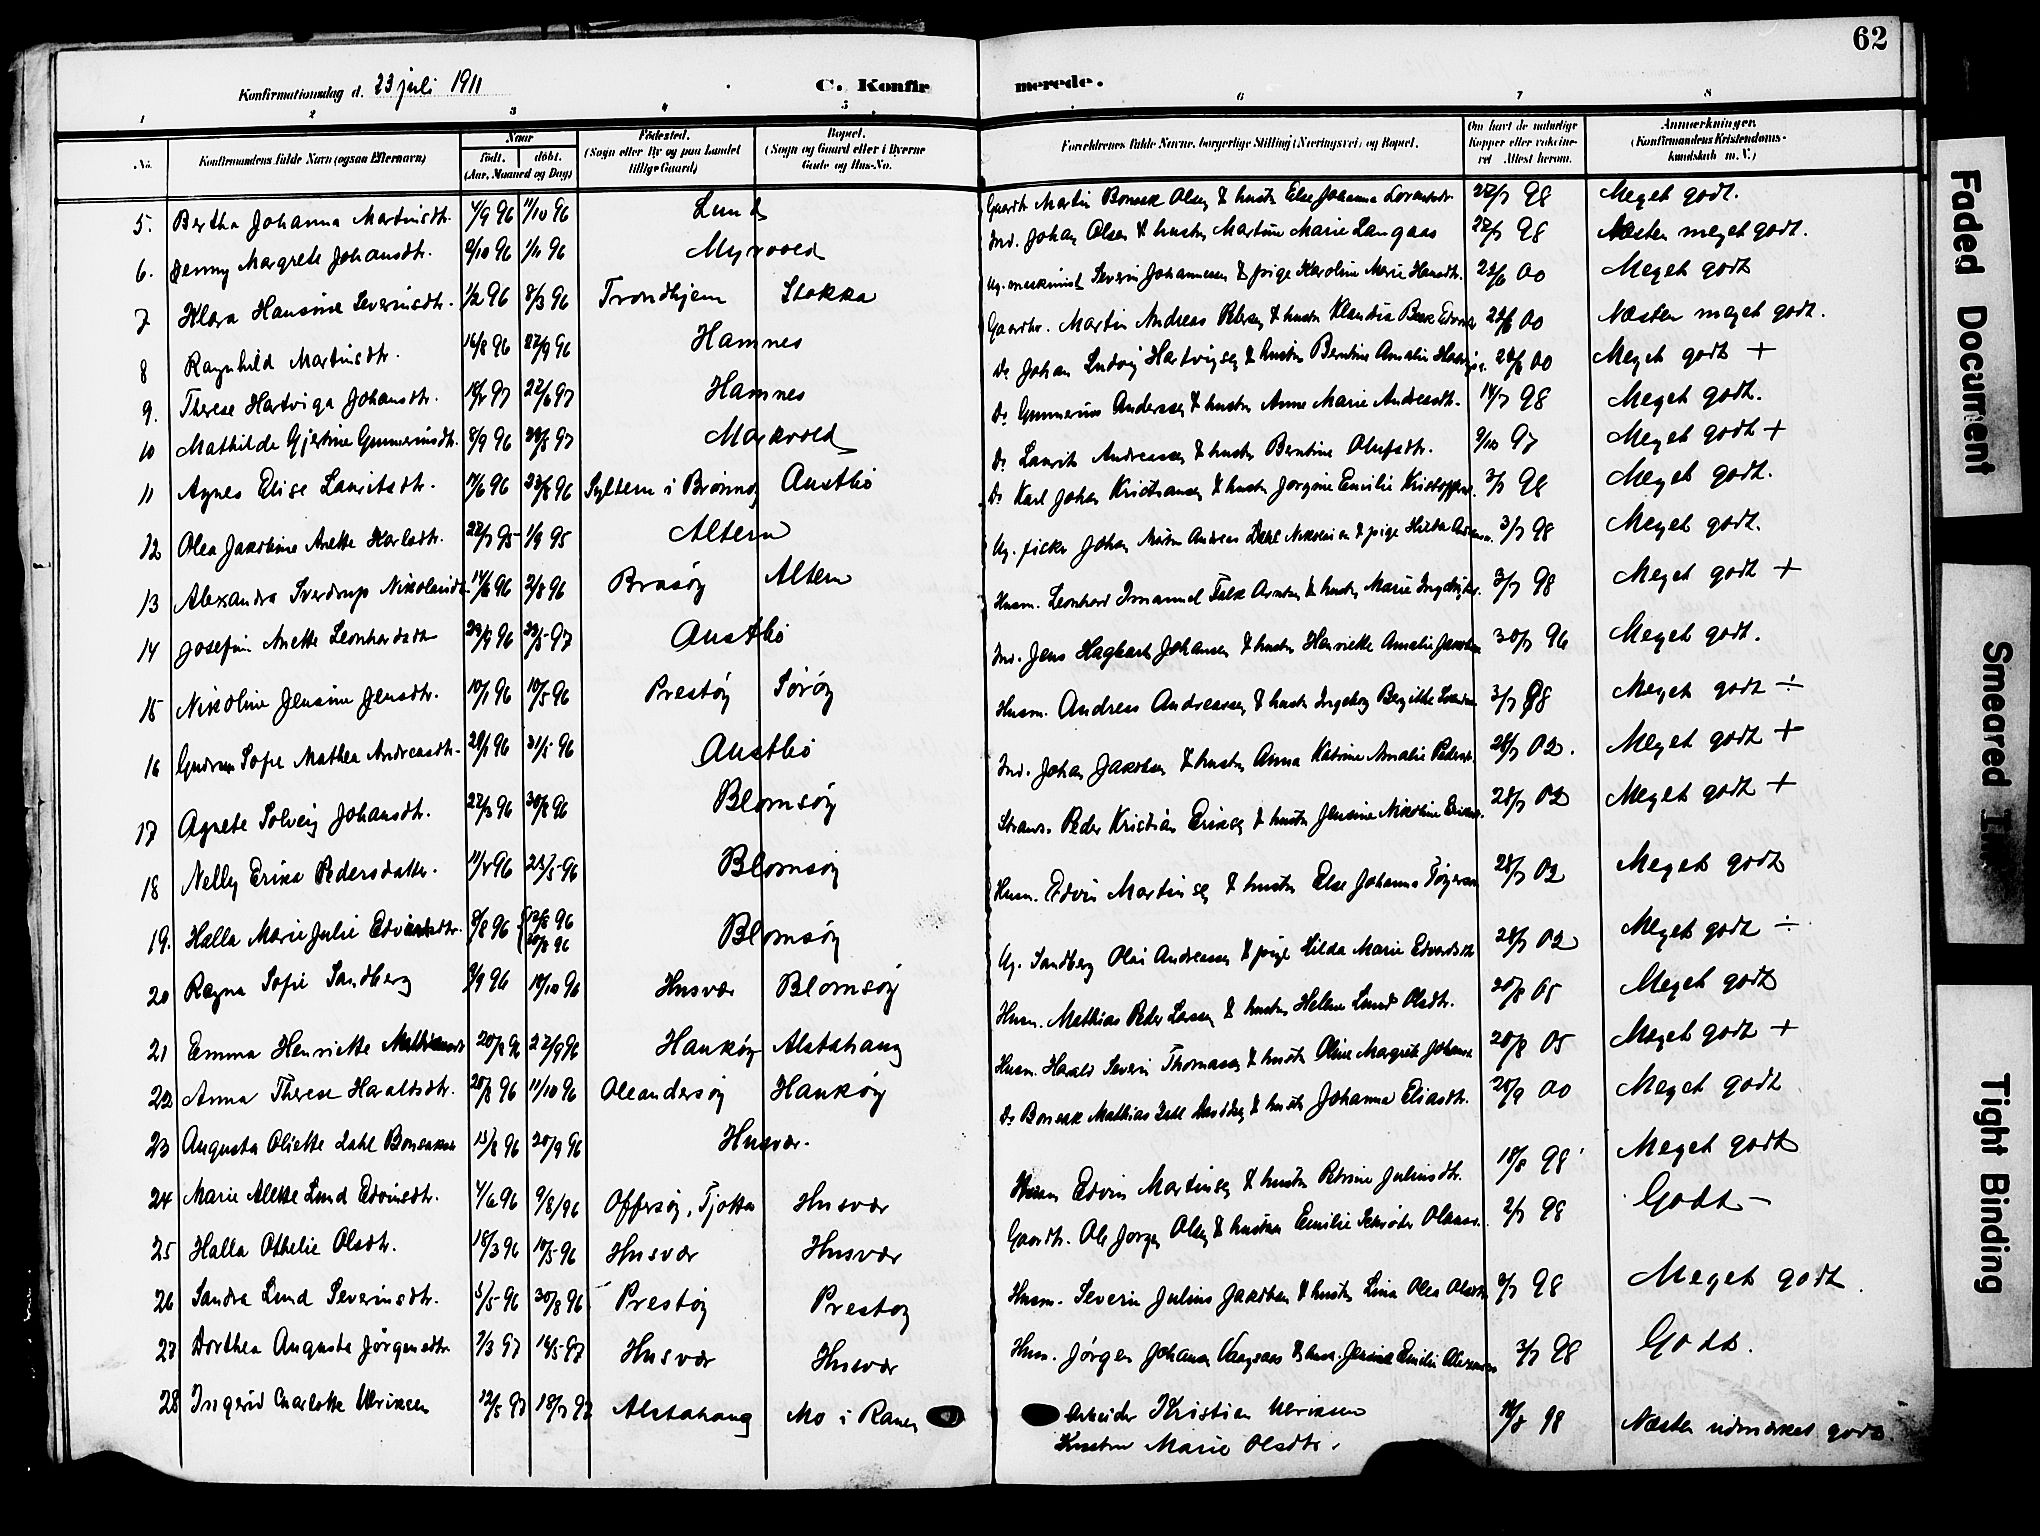 62
Konfirmationsdag d. 23 juli 1911 C. Konfirmerede.
1 2 3 4 5 6 7 8
No. Konfirmandens fulde Navn (ogsaa Efternavn) Naar født. døbt. (Aar, Maaned og Dag) Fødested. (Sogn eller By og paa Landet tillige Gaard) Bopæl. (Sogn og Gaard eller i Byerne Gade og Hus-No. Forældrenes fulde Navne, borgerlige Stilling (Næringsvei) og Bopæl. Om havt de naturlige Kopper eller vaccineret Attest herom. Anmærkninger. (Konfirmandens Kristendomskundskab m. V.)
5. Bertha Johanna Martinsdtr. 4/9 96 11/10 96 Lund Gaardbr. Martin Bonsak Olsen & hustru Else Johanna 98 Meget godt.
6. Jenny Margrete Johansdtr. 9/10 96 1/11 96 Myrvold Ind. Johan Olsen & hustru Martine Marie Langaas 98 Næsten meget godt.
7 Klara Hansine Severinsdtr. 1/2 96 8/3 96 Trondhjem Stokka Ug. maskinist Severin Johannessen & pige Karoline Marie Hansdtr. 00 Meget godt
8 Ragnhild Martinsdtr. 16/8 96 27/9 96 Hamnes Gaardbr. Martin Andreas Petersen & hustru Klaudia 00 Næsten meget godt.
9. Therese Hartviga Johansdtr. 97 22/6 97 Hamnes Do Johan Ludvig Hartvigsen & hustru Berntine Amalie 00 Meget godt +
10 Mathilde Gjertine Gunneriusdtr. 8/9 96 97 Markvold Do Gunnerius Anderssen & hustru Anne Marie Andreasdtr. 14/7 98 Meget godt.
11 Agnes Elise Lauritsdtr. 96 96 Syltern i Brønnøy Austbø Do Laurits Andreassen & hustru Berntine Olufsdtr. 9/10 97 Meget godt +
12 Olea Jakobine Anette Karlsdtr. 27/7 95 1/9 95 Altern Do Karl Johan Kristiansen & hustru Jørgine Emilie 3/7 98 Meget godt.
13 Alexandra Sverdrup Nikolaisdtr. 14/6 96 2/8 96 Brasøy Altern Ug. fisker Johan Andreas Dahl Nikolaisen & pige Hilda 3/7 98 Meget godt.
14 Josefine Anette Leonhardsdtr 96 97 Austbø Husm. Leonhard Imanuel Falk & hustru Marie 3/7 98 Meget godt +
15 Nikoline Jensine Jensdtr. 10/1 96 10/5 96 Prestøy Sørøy Ind. Jens Hagbart Johansen & hustru Henriette Amalie 30/7 96 Meget godt.
16 Gudrun Sofie Mathea Andreasdtr. 96 31/5 96 Austbø Husm. Andreas Andreassen & hustru Ingeborg Bergitte 3/7 98 Meget godt ÷
17 Agnete Solveig Johansdtr. 27/3 96 30/8 96 Blomsøy Ind. Johan Jakobsen & hustru Anna Katrine Amalie 28/7 02. Meget godt +
18 Nelly Erika Pedersdatter. 96 96 Blomsøy Peder Kristian Eriksen & hustru Jensine Nikoline 28/7 02 Meget godt +
19. Halla Marie Julie Edvinsdtr. 8/8 96 96 30/8 96 Blomsøy Husm. Edvin Martinsen & hustru Else Johanna 28/7 02 Meget godt
20 Ragna Sofie Sandberg 9/9 96 10/10 96 Husvær Blomsøy Ug. Sandberg Olai Andreassen & pige Hilda Marie Edvardsdtr 28/7 02 Meget godt ÷
21 Emma Henriette Mathiasdtr 20/8 96 27/9 96 Haukøy Alstahaug Husm. Mathias Peder Larsen & hustru Helene Lund Olsdtr. 20/8 05 Meget godt
22 Anna Therese Haraldsdtr. 20/8 96 11/10 96 Oleandersøy Haukøy Husm. Harald Severin Thomassen & hustru Oline Margrete 20/8 05 Meget godt +
23 Augusta Oliette Dahl 15/8 96 20/9 96 Husvær. Do Bonsak Mathias Dahl & hustru Johanna Eliasdtr. 20/9 00 Meget godt
24 Marie Alette Lund Edvinsdtr. 4/6 96 9/8/96 Offersøy, Tjøtta Husvær Husm Edvin Martinsen & hustru Petrine Juliusdtr. 18/8 98 Meget godt
25 Halla Othelie Olsdtr. 18/3 96 10/5 96 Husvær Husvær Gaardbr. Ole Jørgen Olsen & hustru Emilie Schrøder 2/7 98 Godt –
26 Sandra Lund Severinsdtr. 5/5 96 30/8 96 Prestøy Prestøy Husm. Severin Julius Jakobsen & hustru Lina Olea 3/7 98 Meget godt.
27 Dorthea Augusta Jørgensdtr. 7/3 97 16/5 97 Husvær Husvær Husm. Jørgen Johansen & hus. Jensine Emilie 3/7 98 Godt.
28 Ingerid Charlotte Ulriksen 12/5 97 18/7 97 Alstahaug Mo i Ranen Arbeider Kristian Ulriksen 98 Næsten udmærket godt.
Hustru Marie Olsdtr.
Faded Document
Smeared Ink
Tight Binding